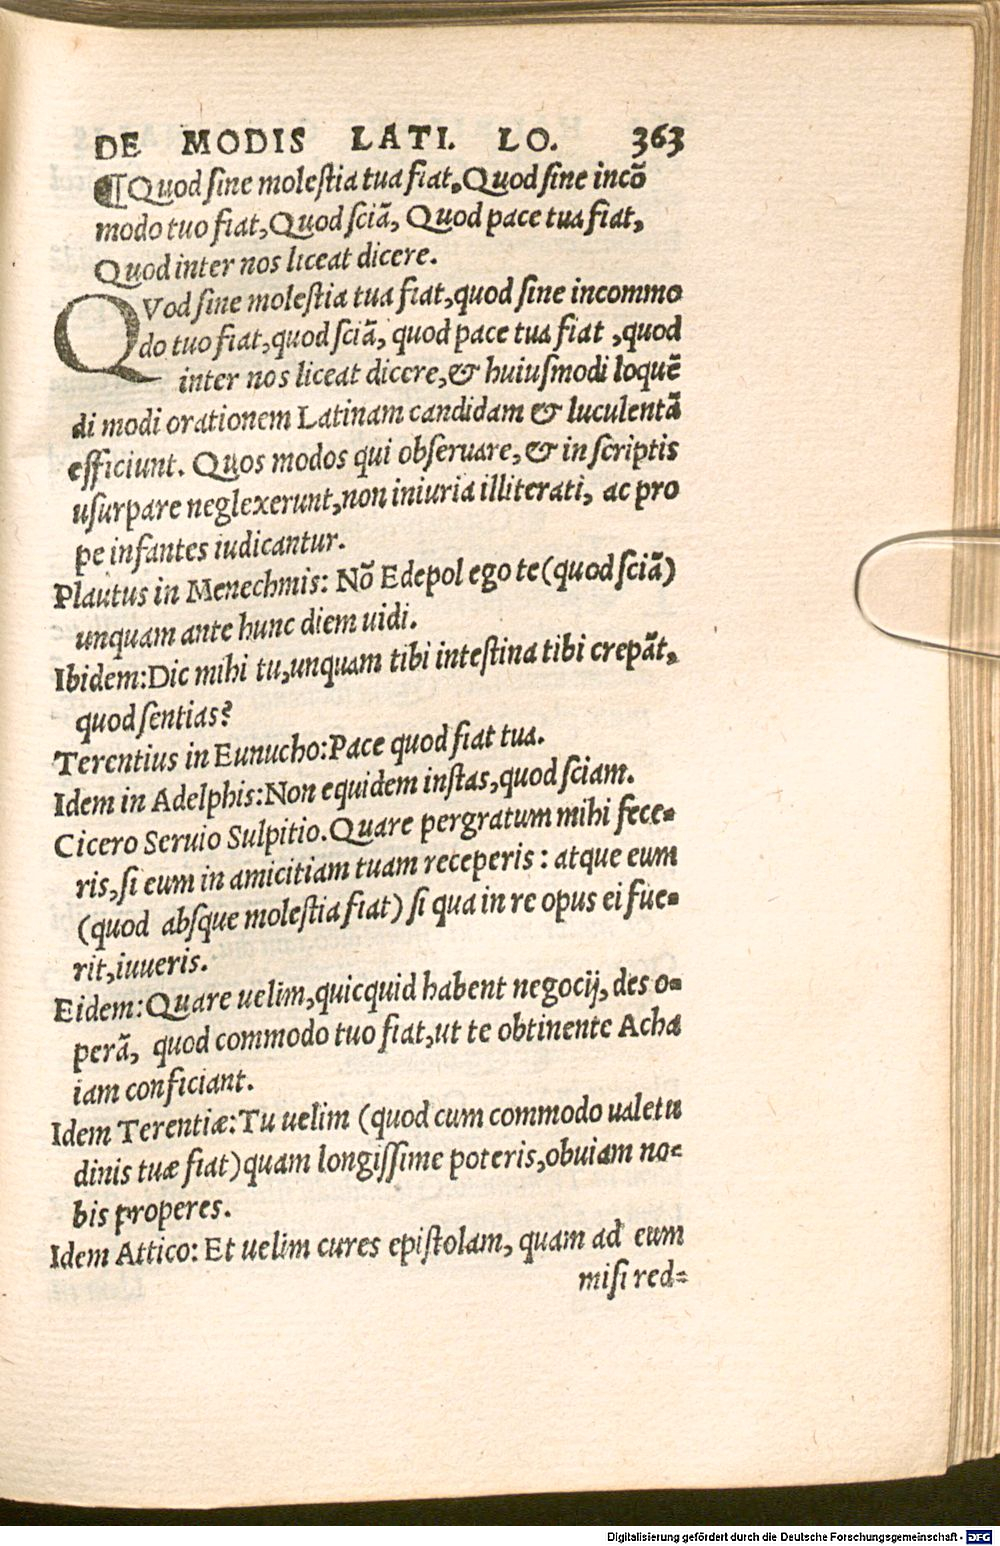 DE MODIS LATI. LO. 363
¶Quod ſine moleſtia tua fiat. Quod ſine incõ
modo tuo fiat, Quod ſciã, Quod pace tua fiat,
Quod inter nos liceat dicere.
QVod ſine moleſtia tua fiat, quod ſine incommo
do tuo fiat, quod ſciã, quod pace tua fiat, quod
inter nos liceat dicere, & huiuſmodi loquẽ
di modi orationem Latinam candidam & luculentã
efficiunt. Quos modos qui obſeruare, & in ſcriptis
uſurpare neglexerunt, non iniuria illiterati, ac pro
pe infantes iudicantur.
Plautus in Menechmis: Nõ Edepol ego te (quod ſciã)
unquam ante hunc diem uidi.
Ibidem: Dic mihi tu, unquam tibi inteſtina tibi crepãt,
quod ſentias?
Terentius in Eunucho: Pace quod fiat tua.
Idem in Adelphis: Non equidem inſtas, quod ſciam.
Cicero Seruio Sulpitio. Quare pergratum mihi fece-
ris, ſi eum in amicitiam tuam receperis: atque eum
(quod abſque moleſtia fiat) ſi qua in re opus ei fue-
rit, iuueris.
Eidem: Quare uelim, quicquid habent negocij, des o-
perã, quod commodo tuo fiat, ut te obtinente Acha
iam conficiant.
Idem Terentiæ: Tu uelim (quod cum commodo ualetu
dinis tuæ fiat) quam longiſſime poteris, obuiam no-
bis properes.
Idem Attico: Et uelim cures epiſtolam, quam ad eum
miſi red-
Digitalisierung gefördert durch die Deutsche Forschungsgemeinschaft - DFG